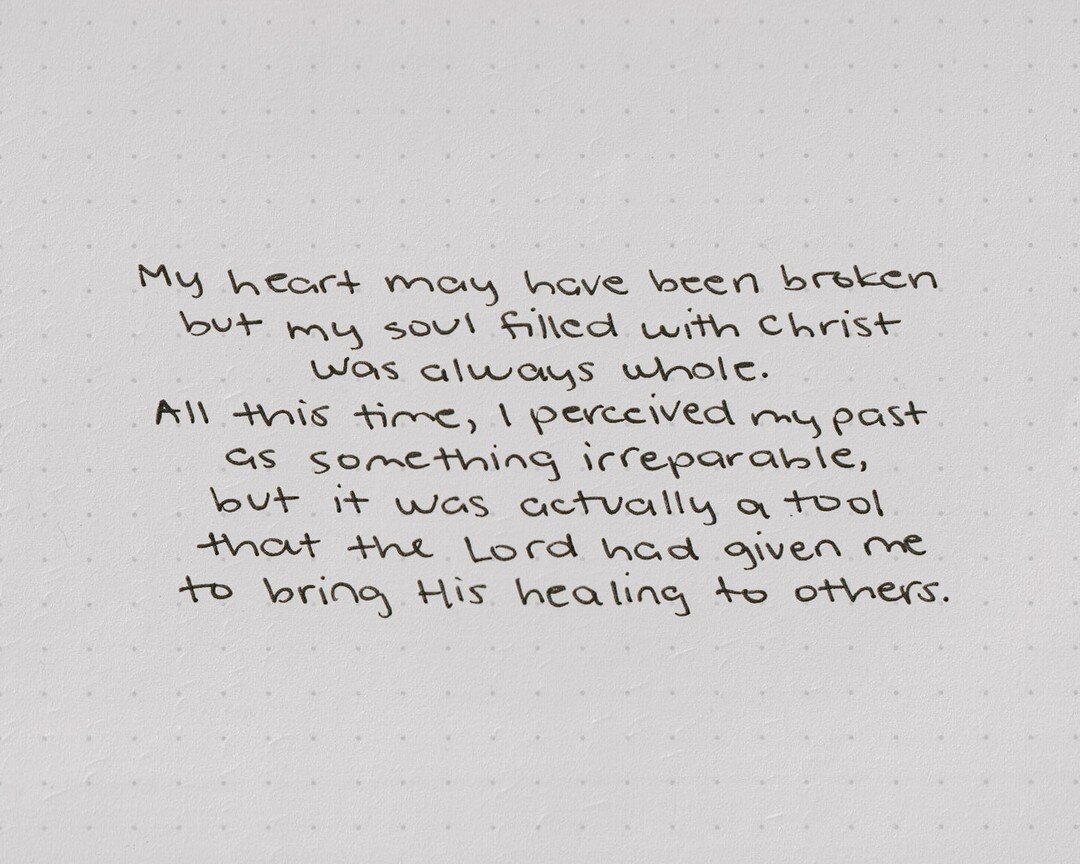 My heart may have been broken
but my soul filled with Christ
was always whole.
All this time, I perceived my past
as something irreparable,
but it was actually a tool
that the Lord had given me
to bring His healing to others.